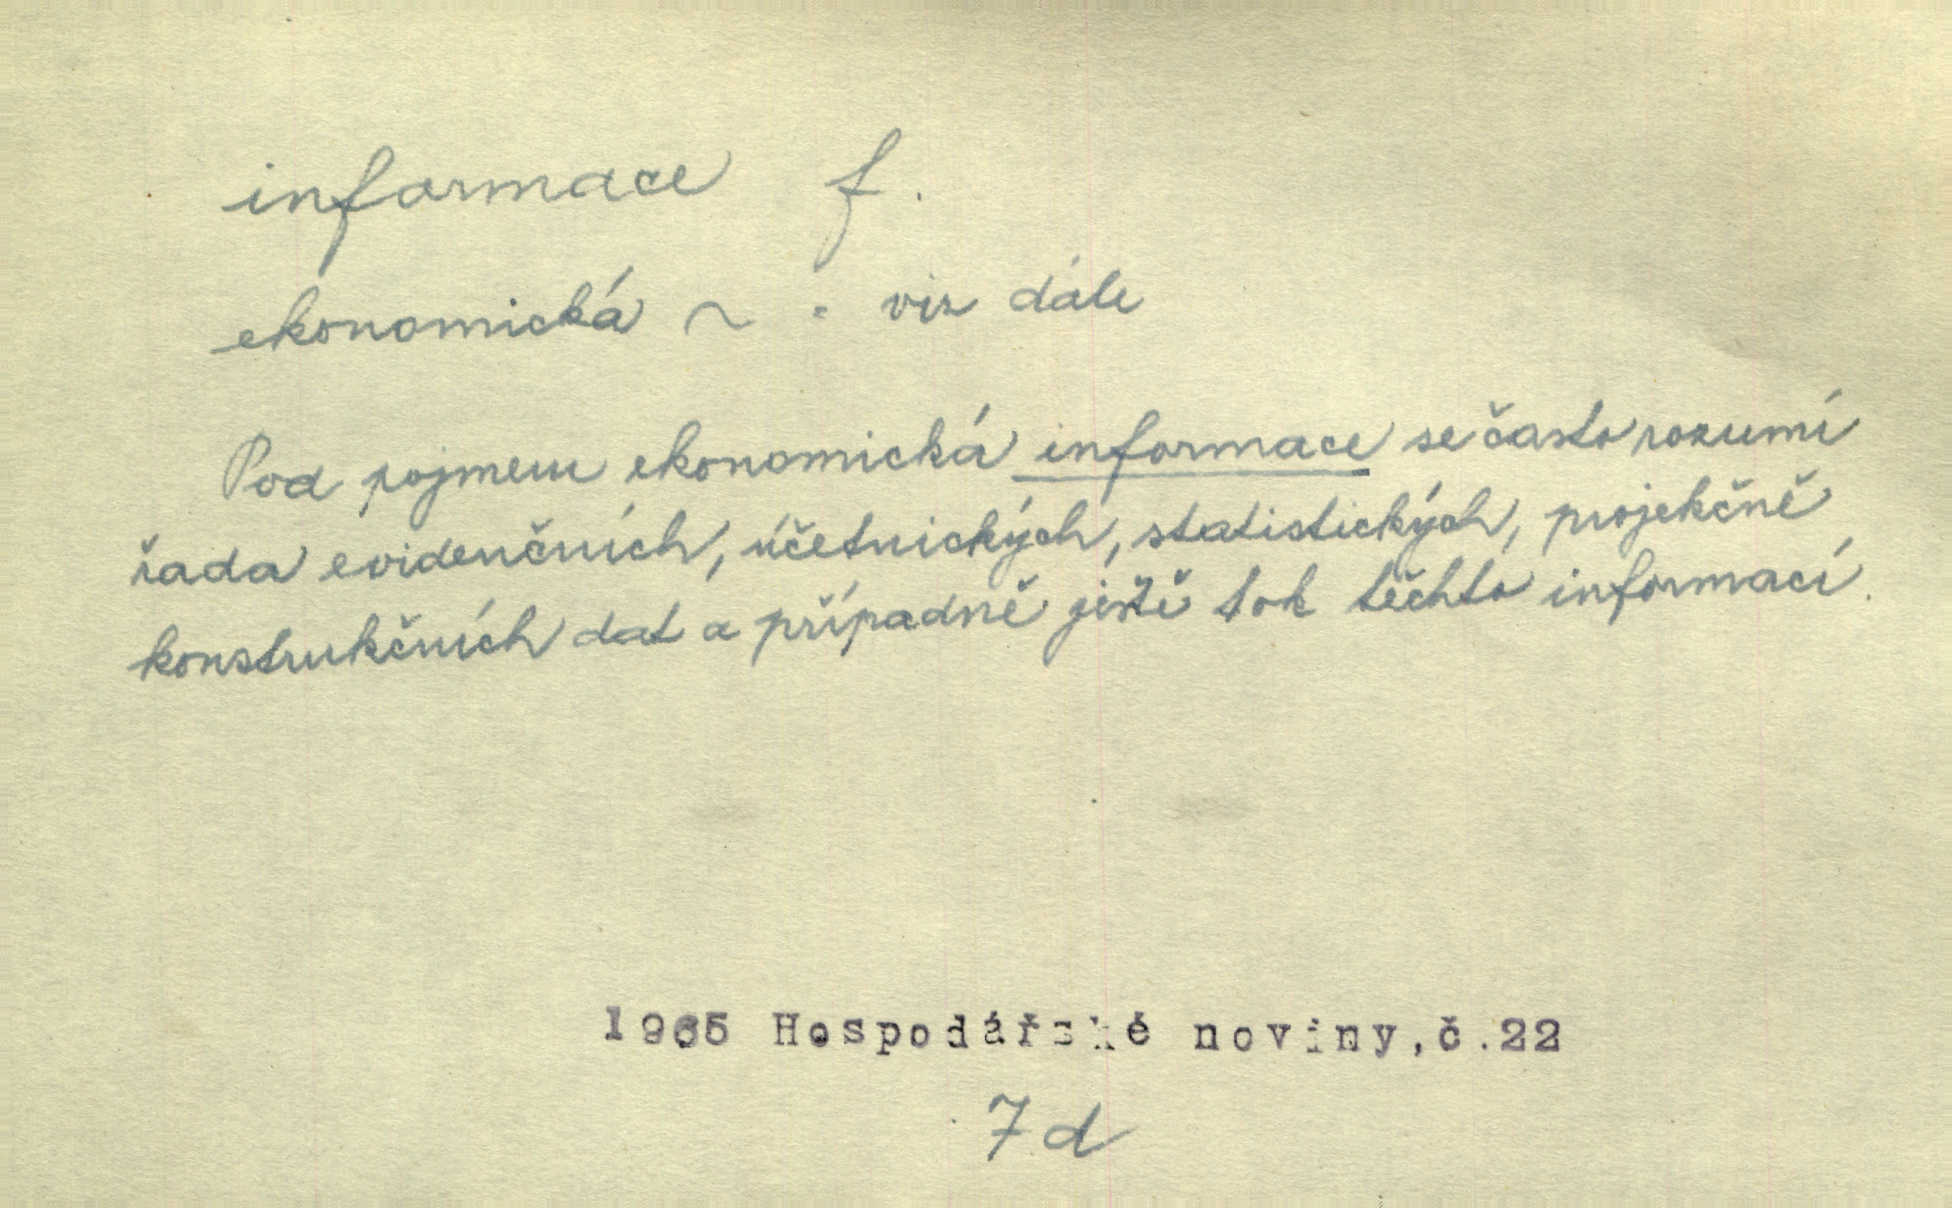 informace f.
ekonomická ~ : viz dále
Pod pojmem ekonomická informace se často rozumí
řada evidenčních, účetnických, statistických, projekčně
konstrukčních dat a případně ještě tok těchto informací.
1965 Hospodářské noviny,č.22
7d